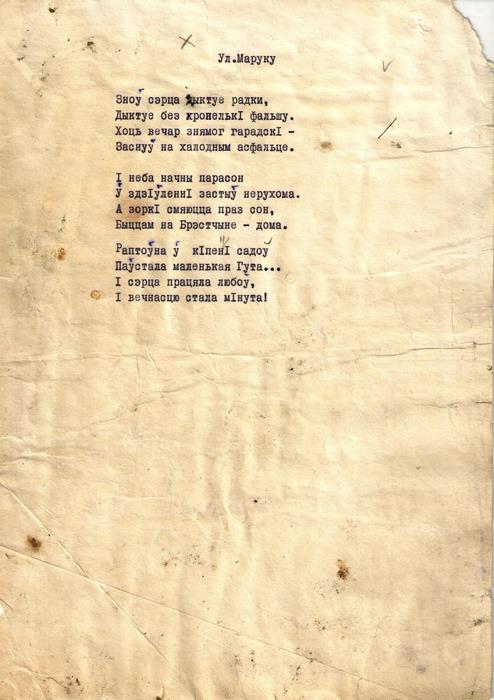 Ул.Маруку
Зноў сэрца дыктуе радки,
Дыктуе без кропелькІ фальшу.
Хоць вечар знямог гарадскІ –
Заснуў на халодным асфальце.
І неба начны парасон
Ў здзІўленнІ застыў нерухома.
А зоркІ смяюцца праз сон,
Быццам на Брэстчыне – дома.
Раптоўна ў кІпенІ садоў
Паўстала маленькая Гута...
І сэрца працяла любоў,
І вечнасцю стала мІнута!